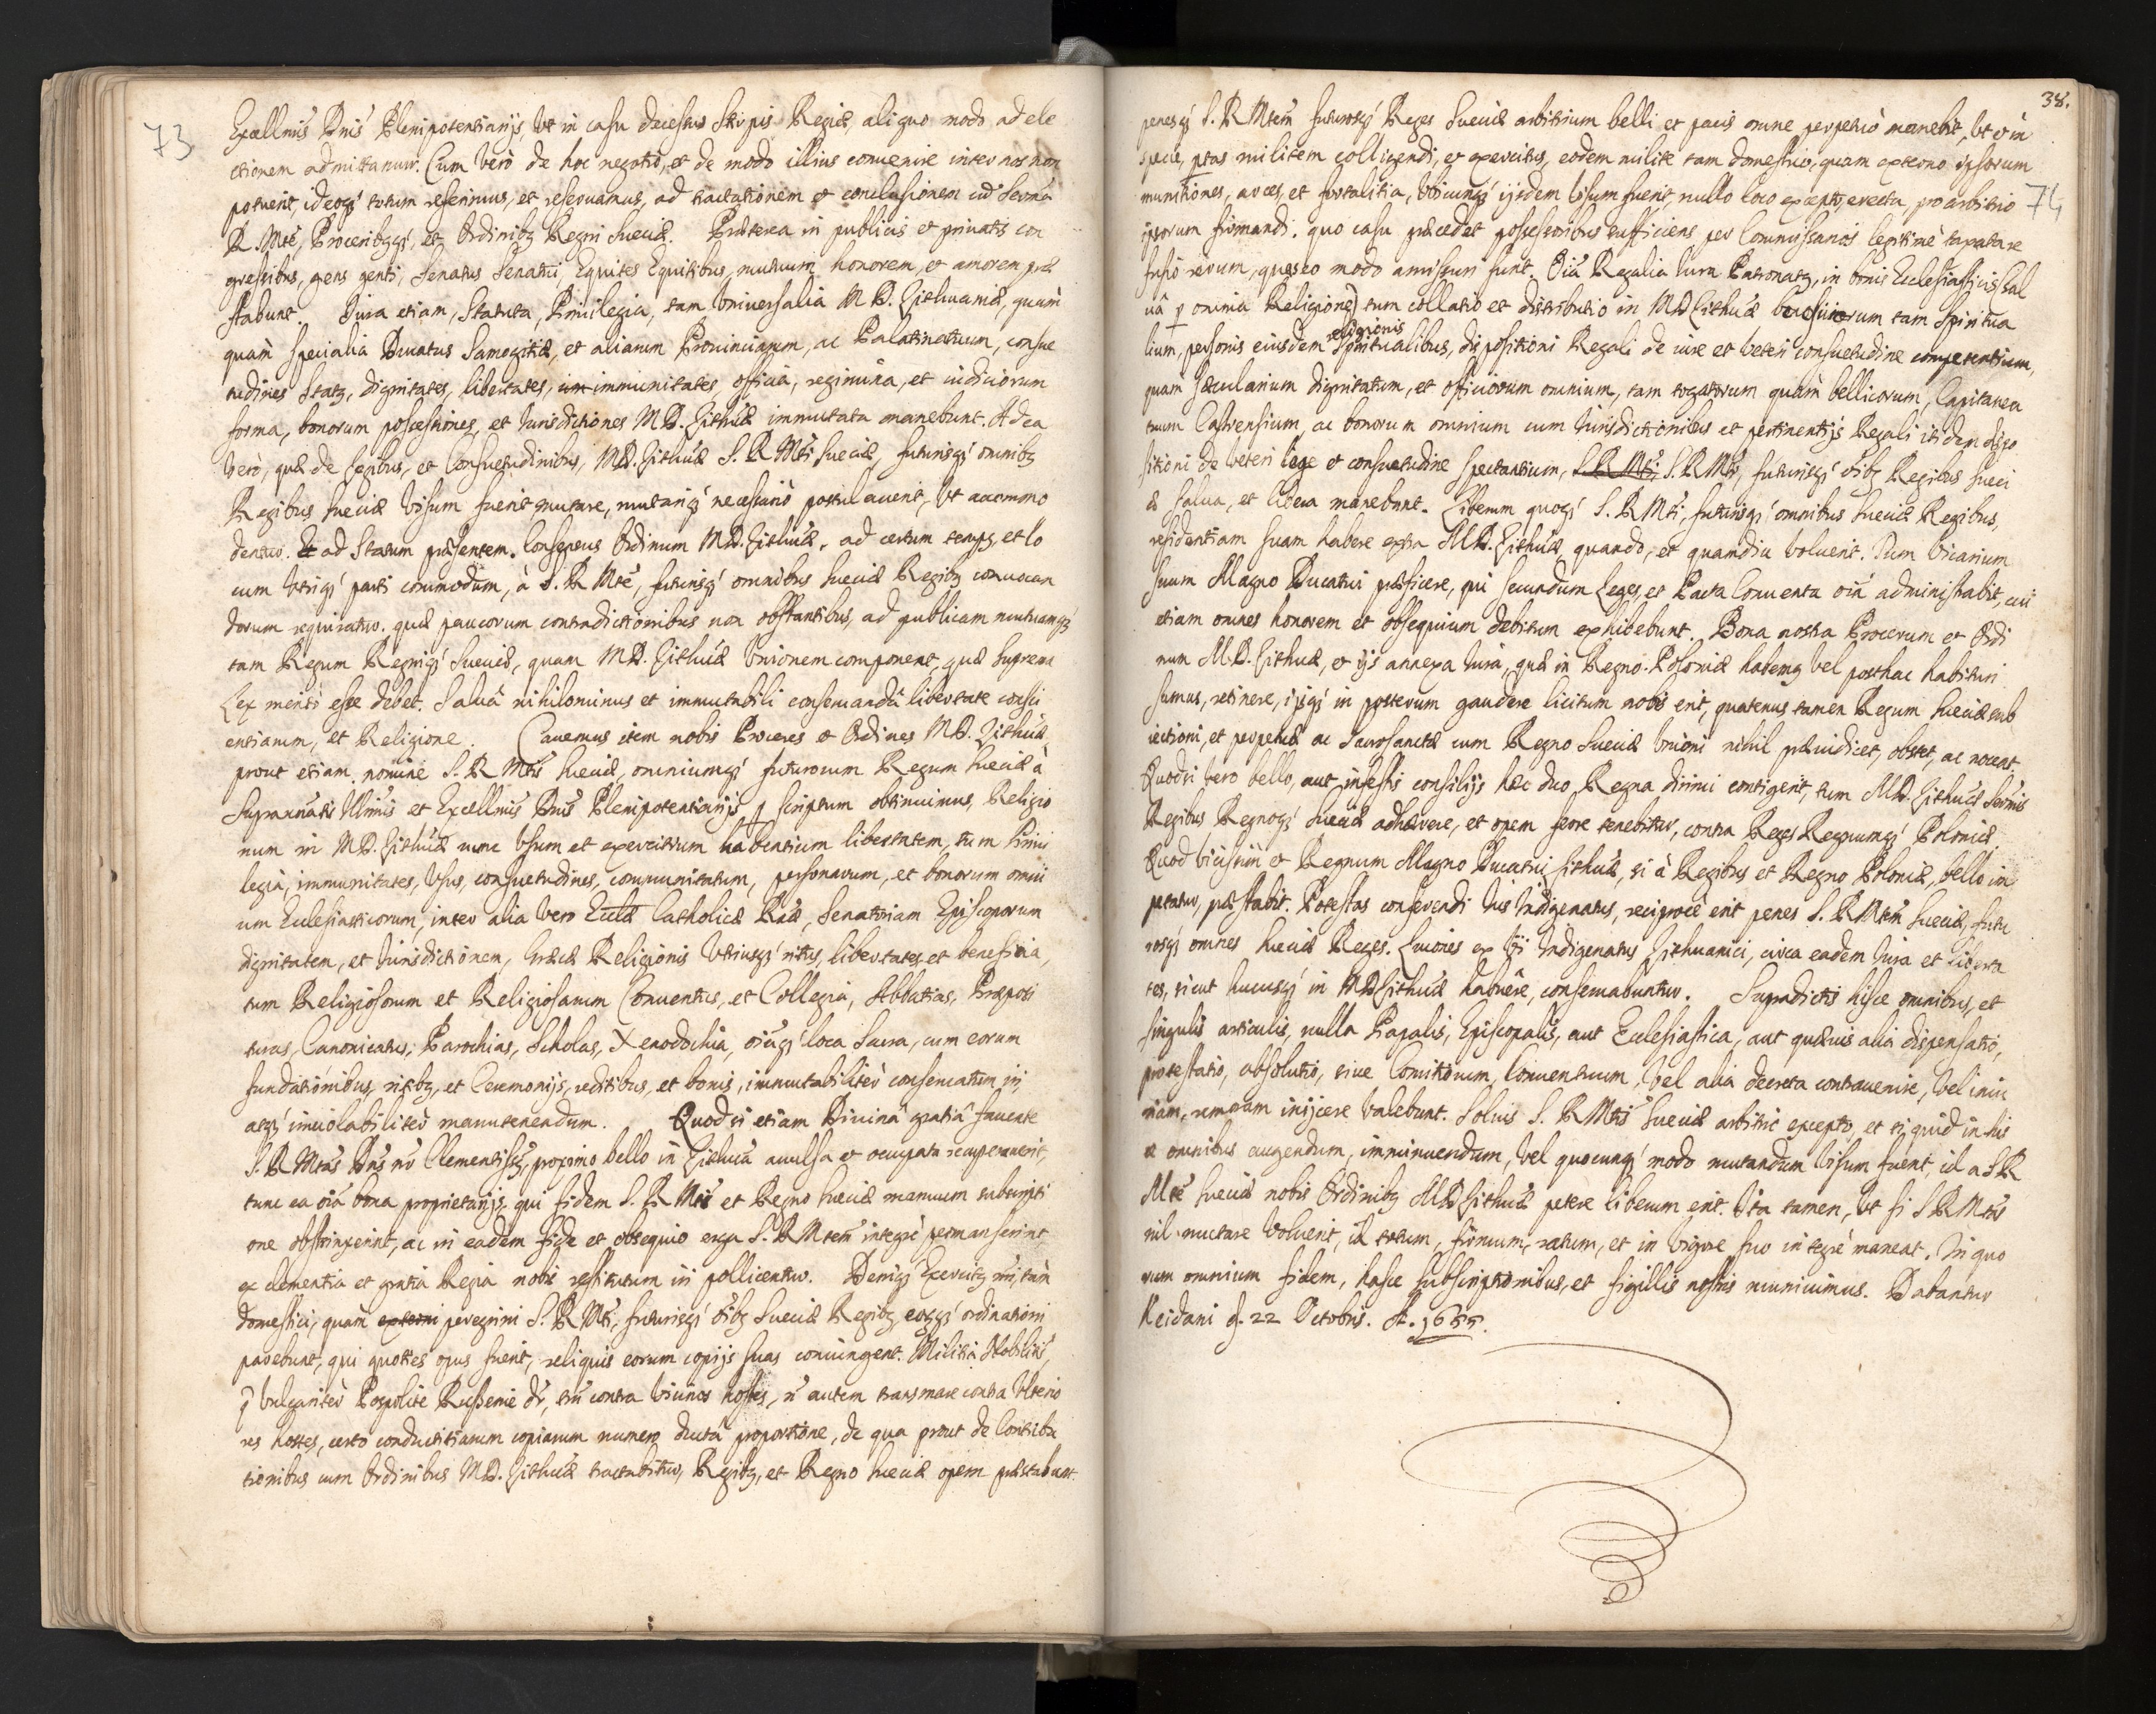 73
Excellmis Dnis Plenipotentiarijs, Ut in casu decessus Stirpis Regiæ, aliquo modo ad ele
ctionem admittamur. Cum verò de hoc negotio, et de modo illius convenire inter nos non
potuerit, ideoq; totum referimus, et reservamus, ad tractationem et conclusionem cū Sermā
R. Mte, Proceribqq;, et Ordinibq Regni Sueciæ. Præterea in publicis et privatis con
gressibus, gens genti, Senatus Senatui, Equites Equitibus, mutuum honorem, et amorem præ
stabunt. Iura etiam, Statuta, Privilegia, tam Universalia M D. Lithuaniæ, quàm
quàm specialia Ducatus Samogitiæ, et aliarum Provinciarum, ac Palatinatuum, consue
tudines Statq, dignitates, libertates, im immunitates, officia, regimina, et iudiciorum
forma, bonorum possessiones, et Iurisdictiones M D. Lithuæ immutata manebunt. Ad ea
verò, quæ de Legibus, et Consuetudinibus, MD. Lithuæ S. R Mti Sueciæ, futurisq; omnibq
Regibus Sueciæ Visum fuerit mutare, mutariq; necessariò postulaverit, Ut accommo
dentur. Et ad Statum præsentem. Consensus Ordinum MD. Lithuæ, ad certum tempq et lo
cum Utriq; parti commodum, à S. R Mte, futurisq; omnibus Sueciæ Regibq convocan
dorum requiratur. quæ paucorum contradictionibus non obstantibus, ad publicam mutuamq;
tam Regum Regniq; Sueciæ, quam MD. Lithuæ Unionem component, quæ suprema
Lex meritò esse debet. Salvâ nihilominus et immutabili conservandâ libertate consci
entiarum, et Religione. Cavemus item nobis Proceres et Ordines MD. Lithuæ
prout etiam nomine S. R Mtis Sueciæ, omniumq; futurorum Regum Sueciæ à
supranatis Illmis et Excellmis Dnis Plenipotentiarijs p scriptum obtinuimus, Religio
num in MD. Lithuæ nunc Usum et exercitium habentium libertatem, tum Privi
legia, immunitates, Usus, consuetudines, communitatum, personarum, et bonorum omni
um Ecclesiasticorum, inter alia vero Ecclæ Catholicæ Rnæ, Senatoriam Episcoporum
dignitatem, et Iurisdictionem, Græcæ Religionis Utriusq; ritus, libertates et beneficia,
tum Religiosorum et Religiosarum Conventus, et Collegia, Abbatias, Præposi
turas, Canonicatus, Parochias, Scholas, Xenodochia, oiāq; loca Sacra, cum eorum
fundationibus, ritibq, et Ceremonijs, reditibus, et bonis, immutabiliter conservatum iri,
atq; inviolabiliter manutenendum. Quod si etiam Divinâ gratiâ favente
S. R Mtas Dns nr Clementissq, proximo bello in Lithuā avulsa et occupata recuperaverit,
tunc ea oiā bona proprietarijs, qui fidem S. R Mti et Regno Sueciæ manuum subscripti
one obstrinxerint, ac in eadem fide et obsequio erga S. R Mtem integrè permanserint
ex clementia et gratia Regia nobis restitutum iri pollicentur. Deniq; Exercitq nri, tàm
domestici, quàm externi peregrini S. R Mti, futurisq; oibq Sueciæ Regibq, eorq; ordinationi
parebunt, qui quoties opus fuerit, reliquis eorum copijs suas coniungent. Militia Nobilis,
q vulgariter Pospolite Russenie dr, tm contra vicinos hostes, n autem transmare contra Ulterio
res hostes, certo conductitiarum copiarum numero ductâ proportione, de qua prout de Contribu
tionibus cum Ordinibus MD. Lithuæ tractabitur, Regibq, et Regno Sueciæ opem præstabunt.
38.
74
penesq; S. R Mtem futurosq; Reges Sueciæ arbitrium belli et pacis omne perpetuò manebit, Ut et in
specie, ptas militem colligendi, et exercitus, eodem milite tam domestico, quam externo ipsorum
munitiones, arces, et fortalitia, Ubicunq; ijsdem Visum fuerit, nullo loco excepto, erecta pro arbitrio
ipsorum firmandi. quo casu præcedet possessoribus sufficiens per Commissarios legitimè taxatare
fusio rerum, quas eo modo amissuri sunt. Oiā Regalia Iura Patronatq, in bonis Ecclesiasticis (sal
vâ p omnia Religione) tum collatio et distributio in MD Lithuæ beneficiorum tam Spiritua
lium, personis eiusdem religionis Spiritualibus, dispositioni Regali de iure et veteri consuetudine competentium,
quam Sæcularium dignitatum, et officiorum omnium, tam togatorum quàm bellicorum, Capitanea
tuum Castrensium, ac bonorum omnium cum Iurisdictionibus et pertinentijs Regali itidem dispo
sitioni de veteri lege et consuetudine spectantium, S R Mti, S. R Mti, futurisq; oibq Regibus Sueci
æ salva, et libera manebunt. Liberum quoq; S. R Mti, futurisq; omnibus Sueciæ Regibus,
residentiam suam habere extra MD. Lithuæ, quando, et quamdiu voluerit. Tum Vicarium
suum Magno Ducatui præficere, qui secundum Leges, et Pacta Conventa oiā administrabit, cui
etiam omnes honorem et obsequium debitum exhibebunt. Bona nostra Procerum et Ordi
num M.D. Lithuæ, et ijs annexa Iura, quæ in Regno Poloniæ habemq vel posthac habituri
sumus, retinere, ijsq; in posterum gaudere licitum nobis erit, quatenus tamen Regum Sueciæ sub
iectioni, et perpetuæ ac Sacrosanctæ cum Regno Sueciæ Unioni nihil præiudicet, obstet, ac noceat.
Quodsi vero bello, aut infestis consilijs hæc duo Regna dirimi contigerit, tum MD. Lithuæ Sermis
Regibus Regnoq; Sueciæ adhærere, et opem ferre tenebitur, contra Reges Regnumq; Poloniæ.
Quod vicissim et Regnum Magno Ducatui Lithuæ, si à Regibus et Regno Poloniæ, bello im
petatur, præstabit. Potestas conferendi Ius Indigenatus, reciprocè erit penes S. R Mtem Sueciæ, futu
rosq; omnes Sueciæ Reges. Livones ex Vi Indigenatus Lithuanici, circa eadem Iura et liberta
tes, sicut hucusq; in MD Lithuæ habuêre, conservabuntur. Supradictis hisce omnibus, et
singulis articulis, nulla Papalis, Episcopalis, aut Ecclesiastica, aut quævis alia dispensatio,
protestatio, absolutio, sive Comitiorum, Conventuum, vel alia decreta contravenire, vel iniu
riam, remoram inijcere valebunt. Solius S. R Mtis Sueciæ arbitrio excepto, et si quid in his
æ omnibus augendum, imminuendum, vel quocunq; modo mutandum Visum fuerit, id a S R
Mte Sueciæ nobis Ordinibq MD Lithuæ petere liberum erit. Ita tamen, Ut si S R Mtas
nil mutare voluerit, id totum, firmum, ratum, et in vigore suo integrè maneat. In quo
rum omnium fidem, hasce subscriptionibus, et sigillis nostris munivimus. Dabantur
Keidani d. 22 Octobris. A. 1655.